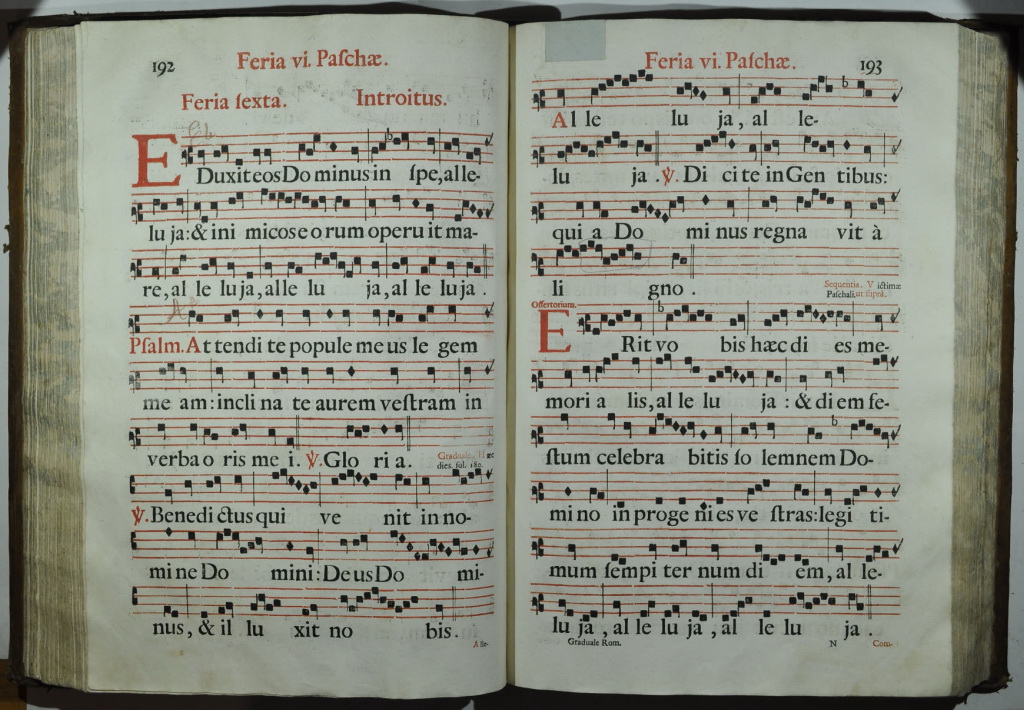 192
Feria vi. Paſchæ.
Feria ſexta. Introitus.
E Duxit eos Do minus in ſpe, alle-
lu ja: & ini micos e o rum operu it ma-
re, al le lu ja, alle lu ja, al le lu ja.
Pſalm. At tendi te popule me us le gem
me am: incli na te aurem veſtram in
verba o ris me i. ℣. Glo ri a.
Graduale. Hæc
dies. fol. 180.
℣. Benedi ctus qui ve nit in no-
mi ne Do mini: De us Do mi-
nus, & il lu xit no bis.
Alle-
Feria vi. Paſchæ.
193
Al le lu ja, al le-
lu ja. ℣. Di ci te in Gen tibus:
qui a Do mi nus regna vit à
li gno.
Sequentia. Victimæ
Paſchali, ut ſuprà.
Offertorium.
E Rit vo bis hæc di es me-
mori a lis, al le lu ja: & di em fe-
ſtum celebra bitis ſo lemnem Do-
mi no in proge ni es ve ſtras: legi ti-
mum ſempi ter num di em, al le-
lu ja, al le lu ja, al le lu ja.
Graduale Rom. N Com-